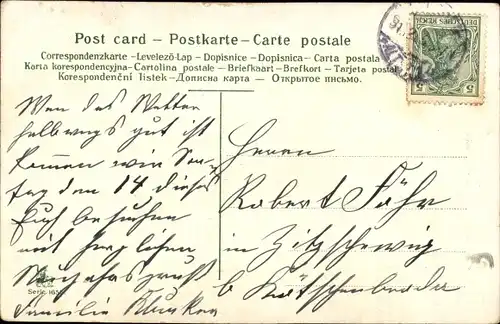 Post card – Postkarte – Carte postale
Correspondenzkarte – Levelező-Lap – Dopisnice – Dopisnica – Carta postala
Karta korespondencyjna – Cartolina postale – Briefkaart – Brefkort – Tarjeta postal
Korespondenční lístek – Дописна карта – Открытое письмо.
DEUTSCHES REICH
5 5
Wen das Wetter
halbwegs gut ist
kommen wir Son-
tag den 14 dieses
Euch besuchen
mit herzlichen
Familie
Serie
Herrn
Robert Föhr
in Zitzschewig
b Kötschenbroda